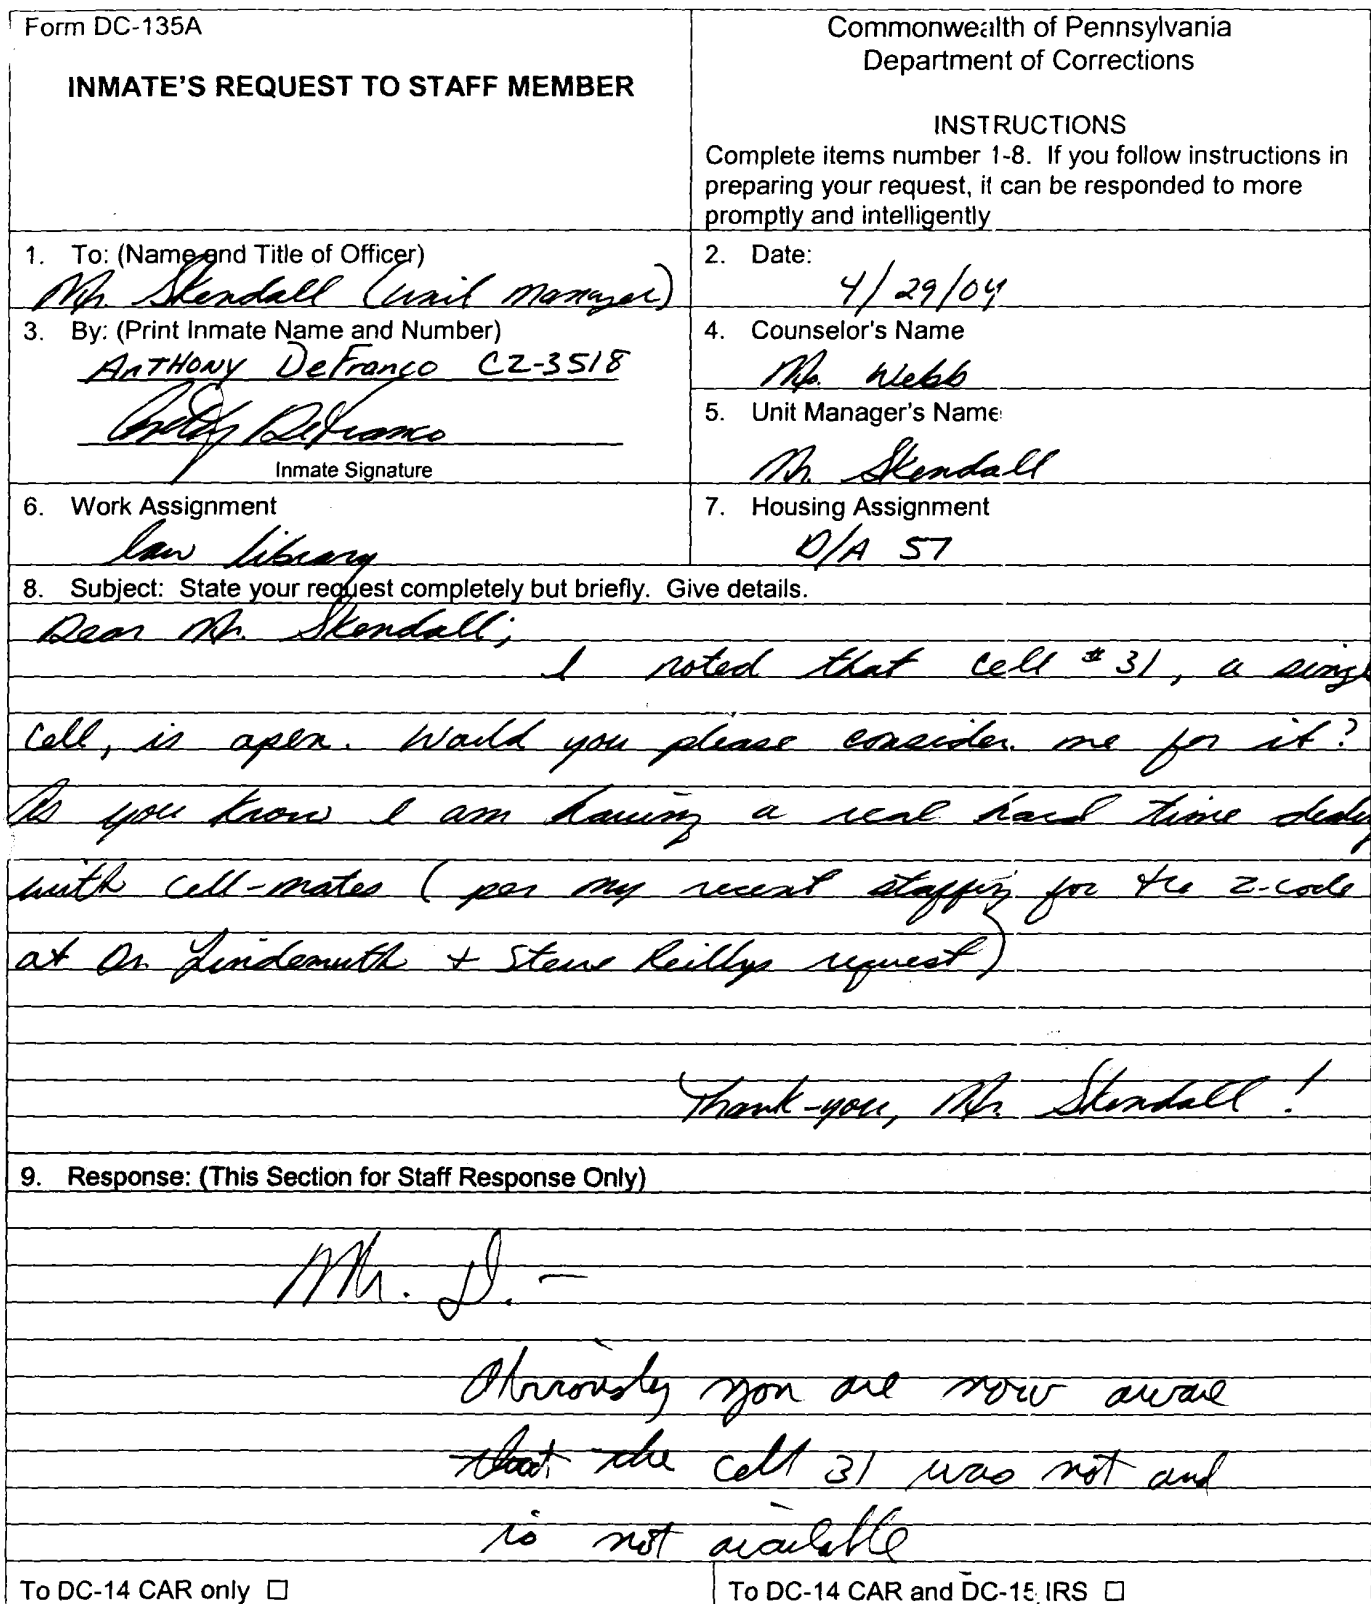 Form DC-135A
INMATE'S REQUEST TO STAFF MEMBER
Commonwealth of Pennsylvania
Department of Corrections
INSTRUCTIONS
Complete items number 1-8. If you follow instructions in
preparing your request, it can be responded to more
promptly and intelligently
1. To: (Name and Title of Officer)
Mr. Skendall (unit manager)
2. Date:
4/29/04
3. By: (Print Inmate Name and Number)
AnTHONY DeFranco CZ-3518
Anthony DeFranco
Inmate Signature
4. Counselor's Name
Ms. Webb
5. Unit Manager's Name
Mr. Skendall
6. Work Assignment
law library
7. Housing Assignment
D/A 57
8. Subject: State your request completely but briefly. Give details.
Dear Mr. Skendall;
I noted that cell #31, a singl
cell, is open. Would you please consider me for it?
As you know I am having a real hard time
with cell-mates (per my recent staffing for the z-code
at Dr. Lindemuth + Steve Reillys request)
Thank-you, Mr. Skendall!
9. Response: (This Section for Staff Response Only)
Mr. D. -
Obviously you are now aware
that the cell 31 was not and
is not available
To DC-14 CAR only ☐
To DC-14 CAR and DC-15 IRS ☐